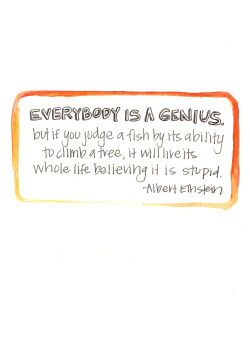 EVERYBODY IS A GENIUS.
but if you judge a fish by its ability
to climb a tree, it will live its
whole life believing it is stupid.
-Albert Einstein